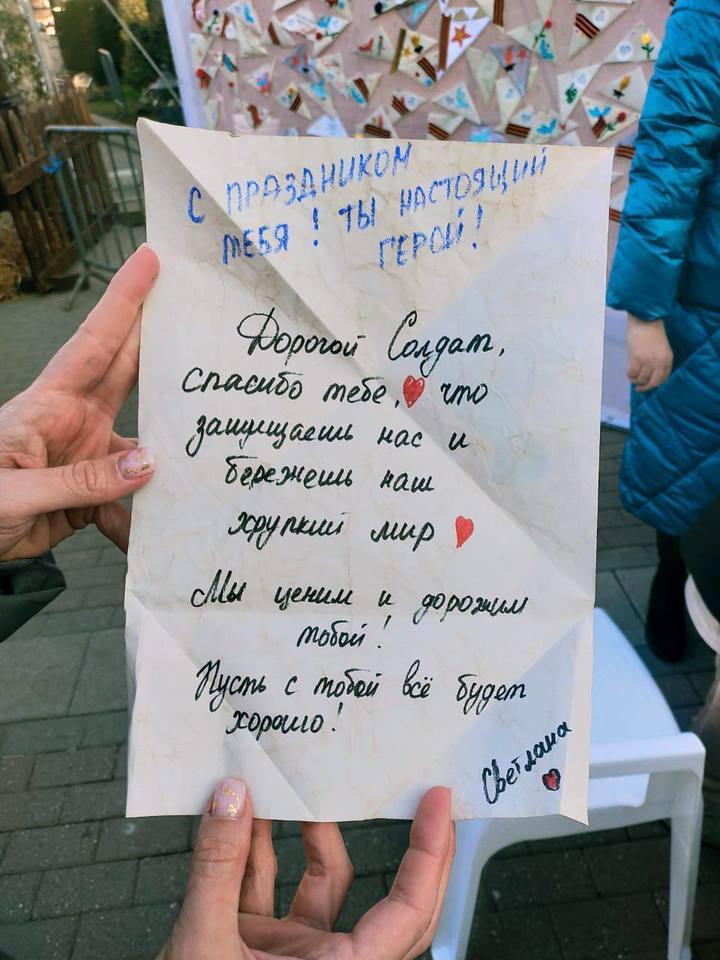 С ПРАЗДНИКОМ
ТЕБЯ! ТЫ НАСТОЯЩИЙ
ГЕРОЙ!
Дорогой Солдат,
спасибо тебе, что
защищаешь нас и
бережешь наш
хрупкий мир
Мы ценим и дорожим
тобой!
Пусть с тобой всё будет
хорошо!
Светлана